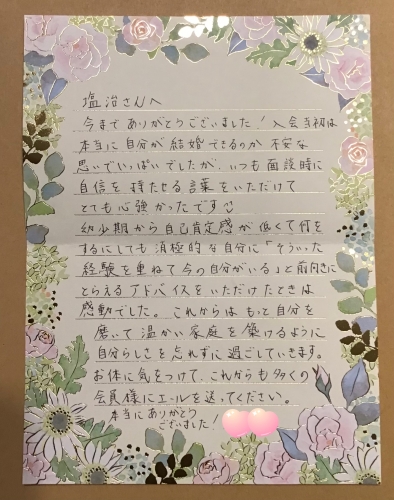 塩治さんへ
今まで ありがとうございました! 入会当初は
本当に 自分が 結婚できるのか 不安な
思いでいっぱいでしたが、いつも 面談時に
自信を 持たせる 言葉を いただけて
とても心強かったです
幼少期から 自己肯定感が 低くて何を
するにしても 消極的な自分に「そういった
経験を重ねて今の自分がいる」と前向きに
とらえる アドバイスを いただけたときは
感動でした。これからは もっと自分を
磨いて 温かい 家庭を 築けるように
自分らしさを 忘れずに 過ごしていきます。
お体に気をつけて、これからも多くの
会員様にエールを送ってください。
本当にありがとう
ございました!